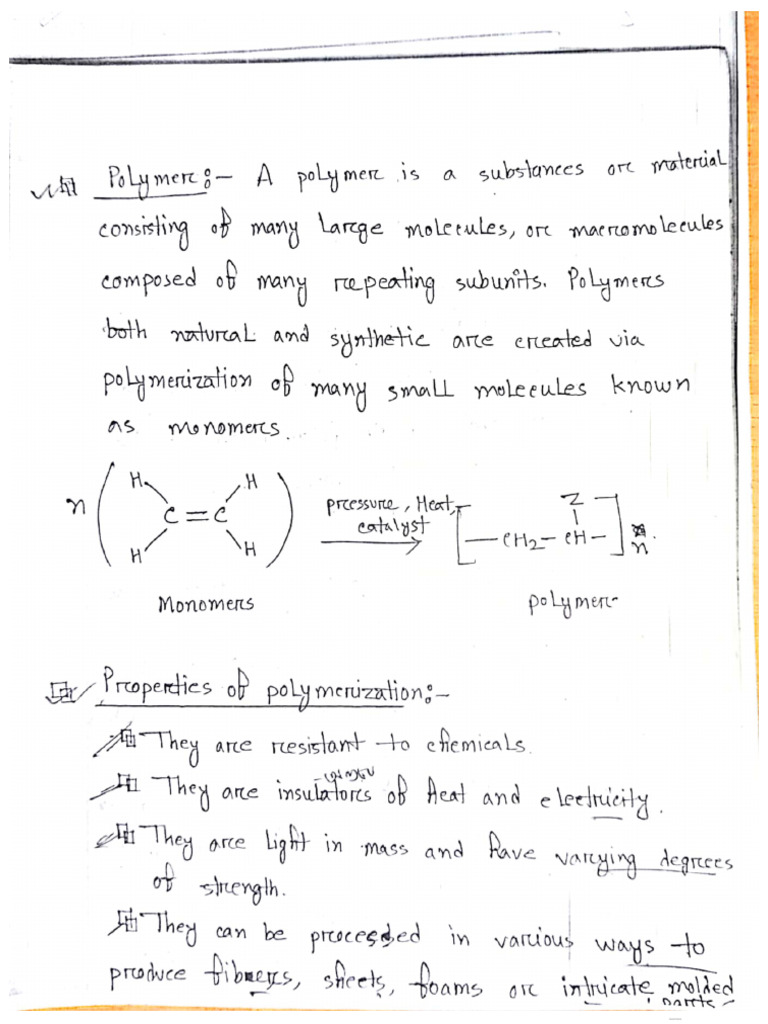 Polymer:- A polymer is a substances or material
consisting of many large molecules, or macromolecules
composed of many repeating subunits. Polymers
both natural and synthetic are created via
polymerization of many small molecules known
as monomers.
n ( H H C = C H H ) pressure, Heat, catalyst [ — CH2 — CH — ] n
Z
Monomers polymer
Properties of polymerization:-
They are resistant to chemicals.
They are insulators of heat and electricity.
They are light in mass and have varying degrees
of strength.
They can be processed in various ways to
produce fibers, sheets, foams or intricate molded
parts